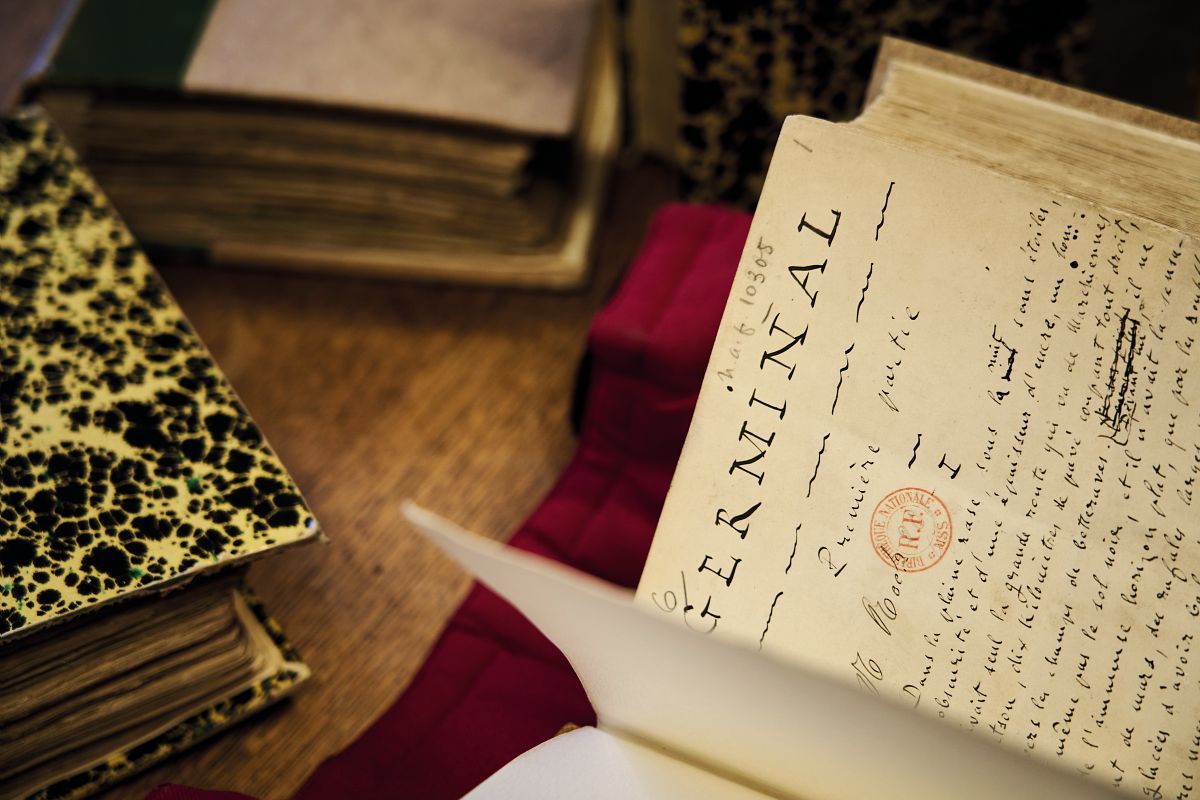 1
n.a.f. 10305
GERMINAL
Première partie
I
BIBLIOTHEQUE NATIONALE MSS
RF
Dans la plaine rase, sous la nuit sans étoiles,
obscurité et d'une épaisseur d'encre, un hom:
vait seul la grande route qui va de Marchiennes
tsou, dix kilomètres de pavé coupant tout droit,
vers les champs de betteraves. Devant lui, il ne
même pas le sol noir, et il n'avait la sensa-
de l'immense horizon plat, que par les souf
nt de mars, des rafales larges
glacées d'avoir